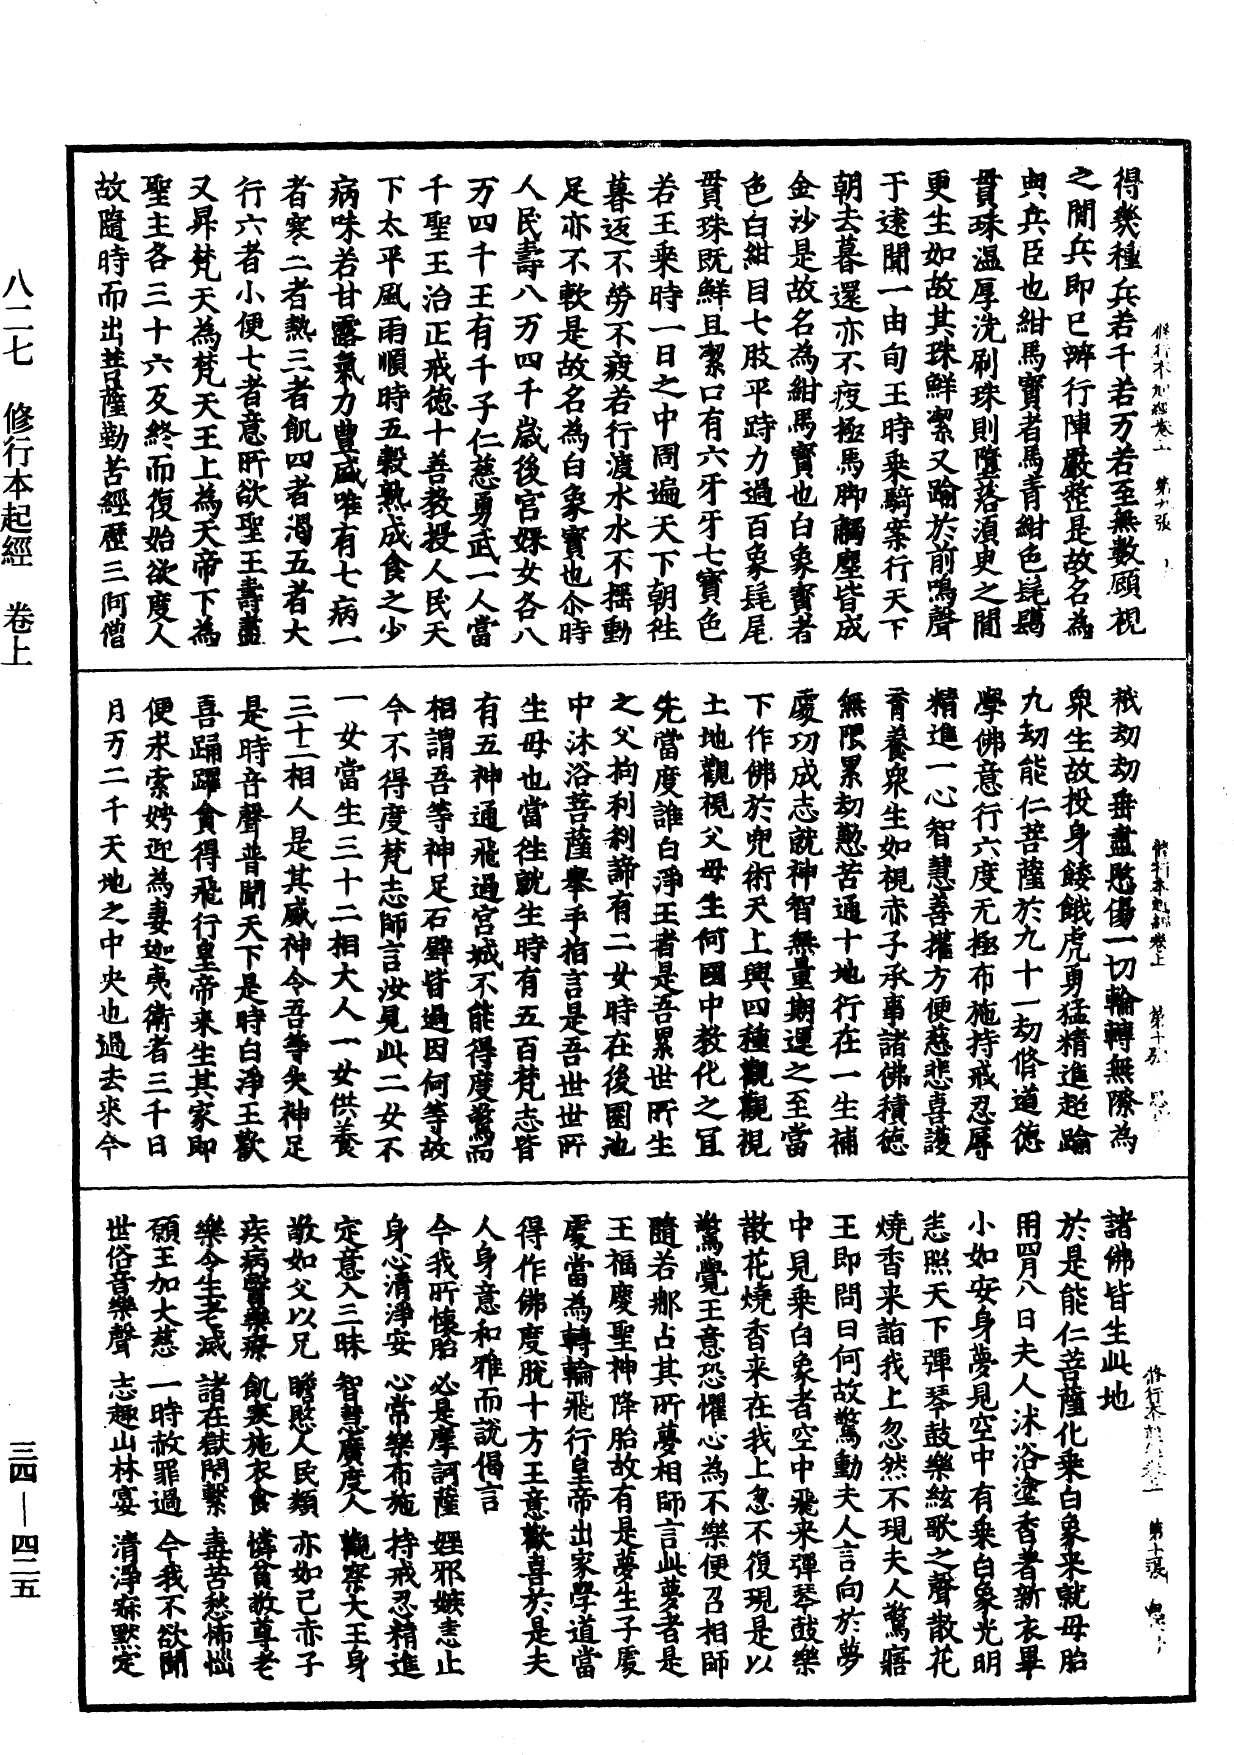 得幾種兵若千若万若至無數顧視
之閒兵即已辦行陣嚴整是故名為
典兵臣也紺馬寶者馬青紺色髦鬣
貫珠温厚洗刷珠則墮落須臾之閒
更生如故其珠鮮潔又踰於前鳴聲
于遠聞一由旬王時乘騎案行天下
朝去暮還亦不疲極馬脚觸塵皆成
金沙是故名為紺馬寶也白象寶者
色白紺目七肢平跱力過百象髦尾
貫珠既鮮且潔口有六牙牙七寶色
若王乘時一日之中周遍天下朝往
暮返不勞不疲若行渡水水不摇動
足亦不軟是故名為白象寶也尒時
人民壽八万四千歲後宫婇女各八
万四千王有千子仁慈勇武一人當
千聖王治正戒德十善教授人民天
下太平風雨順時五穀熟成食之少
病味若甘露氣力豊盛唯有七病一
者寒二者熱三者飢四者渴五者大
行六者小便七者意所欲聖王壽盡
又昇梵天為梵天王上為天帝下為
聖主各三十六反終而復始欲度人
故隨時而出菩薩勤苦經歷三阿僧
秖劫劫垂盡愍傷一切輪轉無際為
衆生故投身餧餓虎勇猛精進超踰
九劫能仁菩薩於九十一劫脩道德
學佛意行六度无極布施持戒忍辱
精進一心智慧善權方便慈悲喜護
育養衆生如視赤子承事諸佛積德
無限累劫懃苦通十地行在一生補
處功成志就神智無量期運之至當
下作佛於兜術天上興四種觀觀視
土地觀視父母生何國中教化之冝
先當度誰白淨王者是吾累世所生
之父拘利刹諦有二女時在後園池
中沐浴菩薩舉手指言是吾世世所
生母也當往就生時有五百梵志皆
有五神通飛過宫城不能得度驚而
相謂吾等神足石壁皆過因何等故
今不得度梵志師言汝見此二女不
一女當生三十二相大人一女供養
三十二相人是其威神令吾等失神足
是時音聲普聞天下是時白淨王歡
喜踊躍貪得飛行皇帝来生其家即
便求索娉迎為妻迦夷衛者三千日
月万二千天地之中央也過去来今
諸佛皆生此地
於是能仁菩薩化乘白象来就母胎
用四月八日夫人沐浴塗香著新衣畢
小如安身夢見空中有乘白象光明
悉照天下彈琴鼓樂絃歌之聲散花
燒香来詣我上忽然不現夫人驚寤
王即問曰何故驚動夫人言向於夢
中見乘白象者空中飛来彈琴鼓樂
散花燒香来在我上忽不復現是以
驚覺王意恐懼心為不樂便召相師
隨若耶占其所夢相師言此夢者是
王福慶聖神降胎故有是夢生子處
處當為轉輪飛行皇帝出家學道當
得作佛度脫十方王意歡喜於是夫
人身意和雅而說偈言
今我所懷胎 必是摩訶薩 婬邪嫉恚止
身心清淨安 心常樂布施 持戒忍精進
定意入三昧 智慧廣度人 觀察大王身
敬如父以兄 瞻愍人民類 亦如己赤子
疾病醫藥療 飢寒施衣食 憐貧敬尊老
樂令生老滅 諸在獄閉繫 毒苦愁怖惱
願王加大慈 一時赦罪過 今我不欲聞
世俗音樂聲 志趣山林宴 清淨寂默定
八二七 修行本起經 卷上
三四—四二五